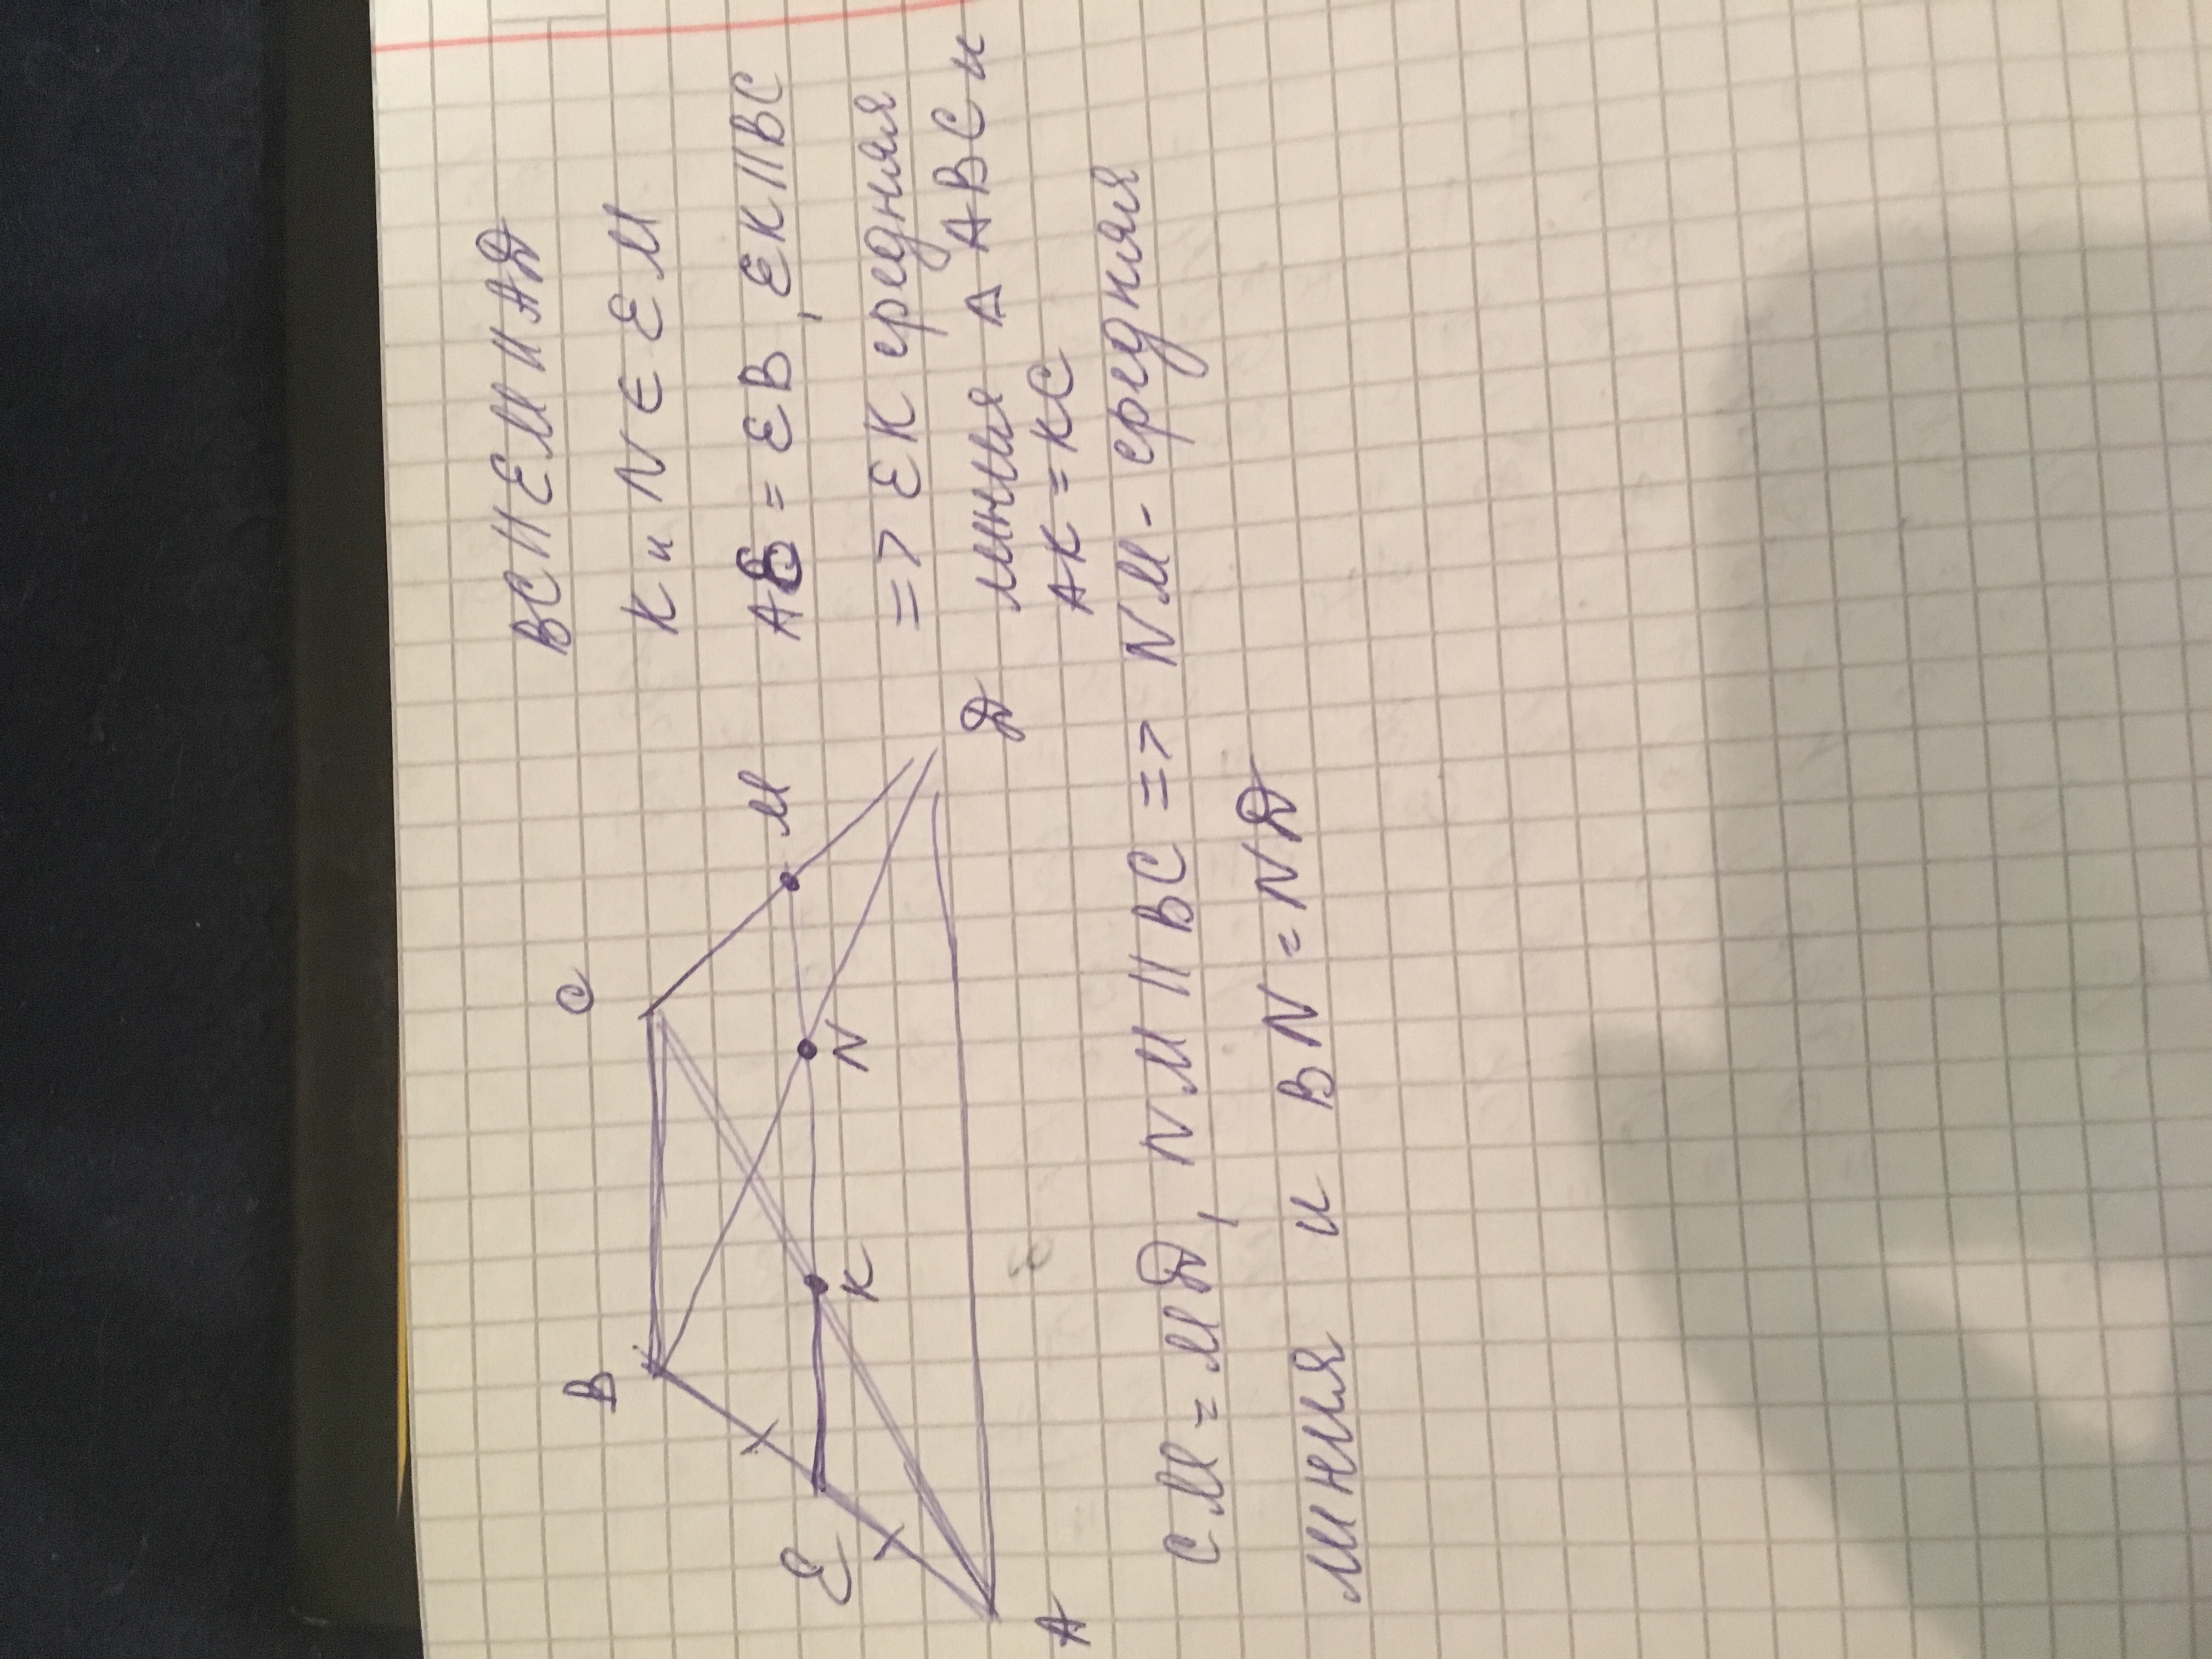 B
C
E
M
K
N
A
Д
BC II EM II AД
K и N ∈ EM
AE = EB, EK II BC
=> EK средняя
линия Δ ABC и
AK = KC
CM = MД, NM II BC => NM - средняя
линия и BN = NД